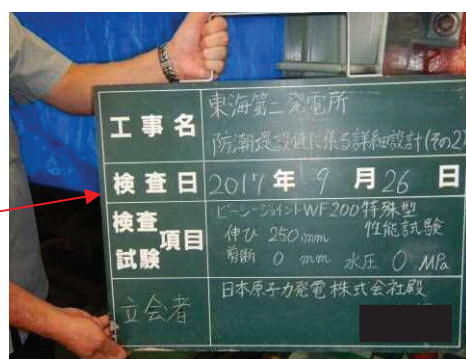 工事名
東海第二発電所
防潮堤設備に係る詳細設計(その2)
検査日 2017年 9月26日
検査
試験
項目
ピーシージョイントWF200特殊型
性能試験
伸び 250mm
剪断 0 mm 水圧 0 MPa
立会者
日本原子力発電株式会社殿